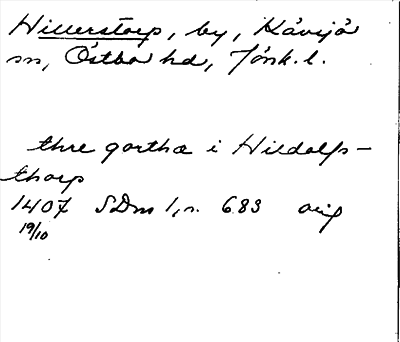 Hillerstorp, by, Kävsjö
sn, Östbo hd, Jönk. l.
thre gortha i Hildolfs-
thorp
1407 SDns 1, s. 683 orig
19/10